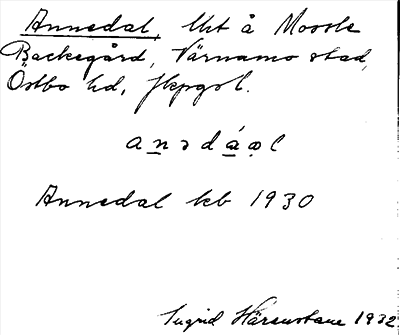 Annedal, lht å Mossle
Backegård, Värnamo stad,
Östbo hd, Jkpgsl.
anədáəl
Annedal kb 1930
Ingrid 1932